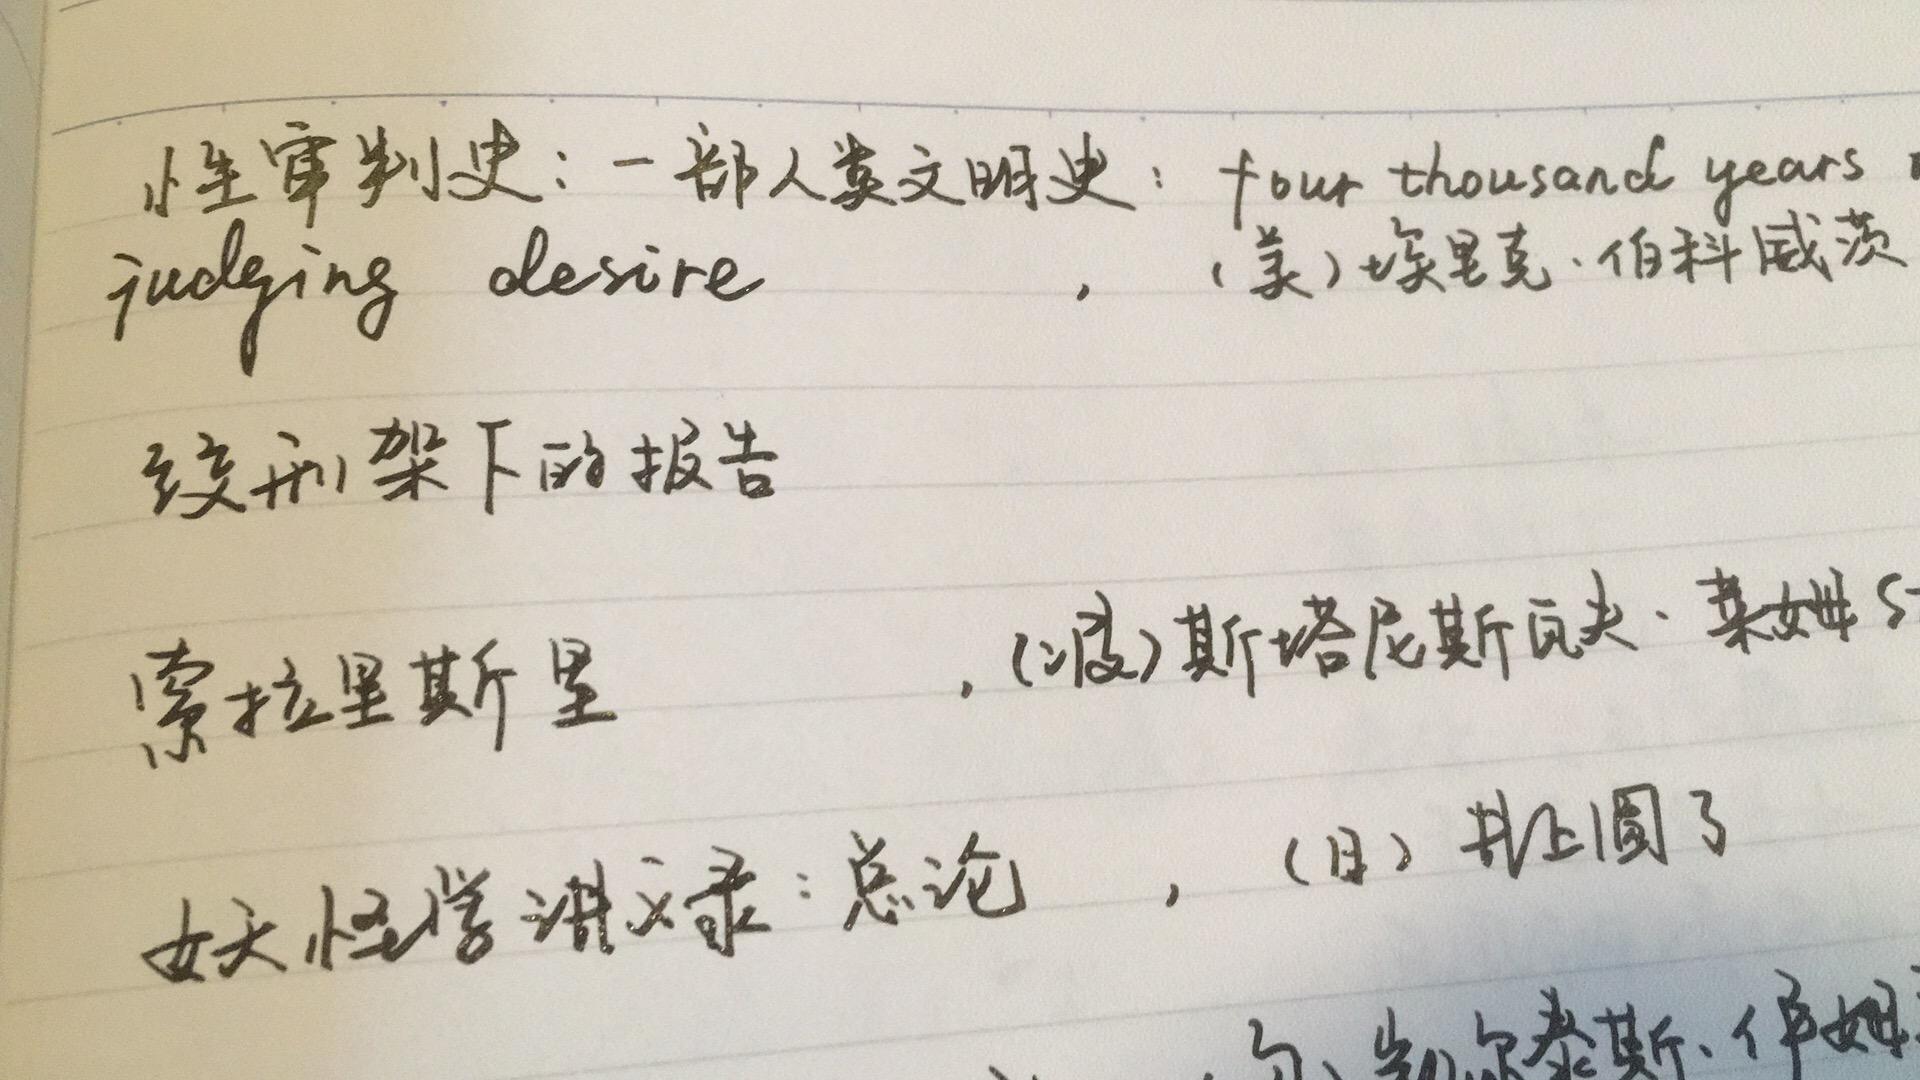 性审判史：一部人类文明史：four thousand years
judging desire ，（美）埃里克·伯科威茨
绞刑架下的报告
索拉里斯星 ，（波）斯塔尼斯瓦夫·莱姆 S
妖怪学讲义录：总论 ，（日）井上圆了
凯尔泰斯·伊姆